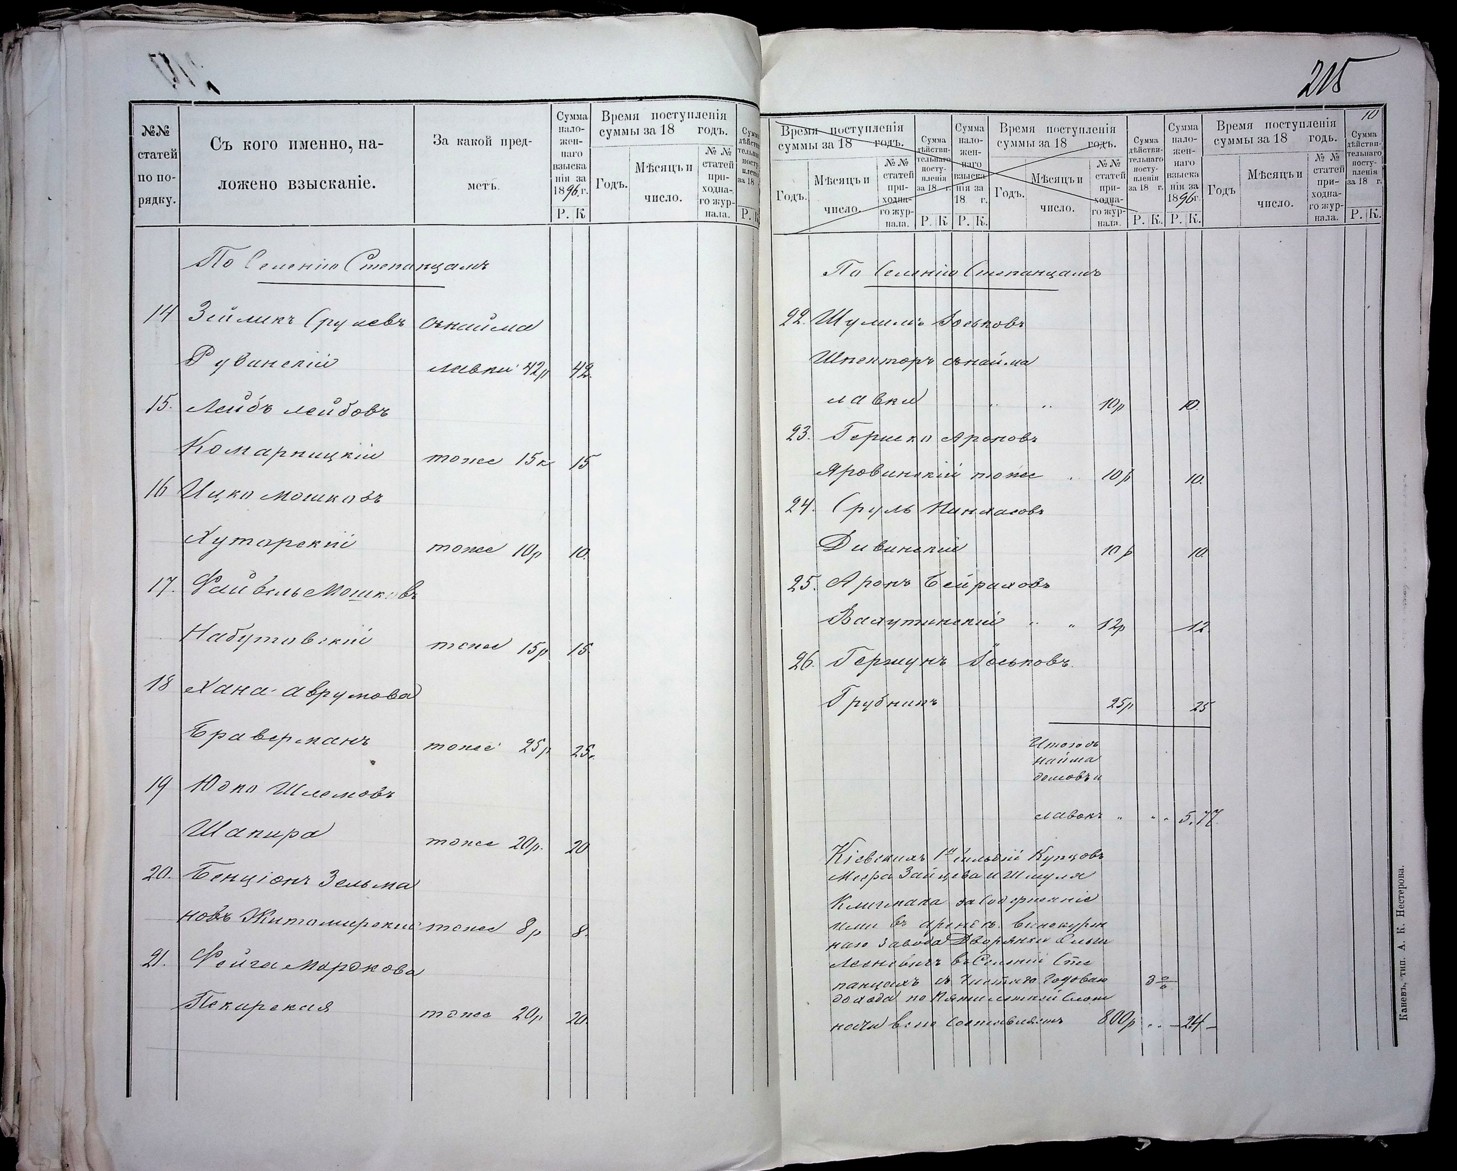 215
10
№№ статей по порядку.
Съ кого именно, наложено взысканіе.
За какой предметъ.
Сумма наложеннаго взысканія за 1896 г.
Р. К.
Время поступленія суммы за 18 годъ.
Годъ.
Мѣсяцъ и число.
№№ статей приходнаго журнала.
По Селенію Степанцамъ
14 Зейликъ Срулевъ съ найма
Рубанскій лавки 42р 42.
15. Лейбъ Лейбовъ
Комарницкій тоже 15 15
16 Ицко Мошковъ
Хутарскій тоже 10р 10.
17. Файвель Мошковъ
Набутовскій тоже 15р 15.
18 Хана Аврумова
Браверманъ тоже 25р 25.
19 Юдко Шлемовъ
Шапира тоже 20р. 20
20. Бенціонъ Зельма
новъ Житомирскій тоже 8р 8.
21. Фейга Мордкова
Пекарская тоже 20р 20.
Время поступленія суммы за 18 годъ.
Годъ.
Мѣсяцъ и число.
№№ статей приходнаго журнала.
Сумма дѣйствительнаго поступленія за 18 г.
Р. К.
Сумма наложеннаго взысканія за 18 г.
Р. К.
Время поступленія суммы за 18 годъ.
Годъ.
Мѣсяцъ и число.
№№ статей приходнаго журнала.
Сумма дѣйствительнаго поступленія за 18 г.
Р. К.
Сумма наложеннаго взысканія за 1896 г.
Р. К.
Время поступленія суммы за 18 годъ.
Годъ
Мѣсяцъ и число.
№№ статей приходнаго журнала.
Сумма дѣйствительнаго поступленія за 18 г.
Р. К.
По Селенію Степанцамъ
22. Шулимъ Іоськовъ
Шпекторъ съ найма
лавки " " 10р 10
23. Гершко Ароновъ
Яровинскій тоже " 10р 10.
24. Сруль Пинхасовъ
Дивинскій 10р 10.
25. Аронъ Бейраховъ
Вахутинскій " " 12р 12.
26. Гершунъ Іоськовъ
Трубникъ 25р 25
Итого съ
найма
домовъ и
лавокъ " " 577
Кіевскихъ 1й Гильдіи Купцовъ
Меера Зайцева и Шмуля
за содержаніе
ими въ арендѣ винокурен
наго завода Дворянки
въ Селеніи Сте
панцахъ съ чистаго годоваго 3%
дохода по пятилетней
800р " " 24
Каневъ, тип. А. К. Нестерова.